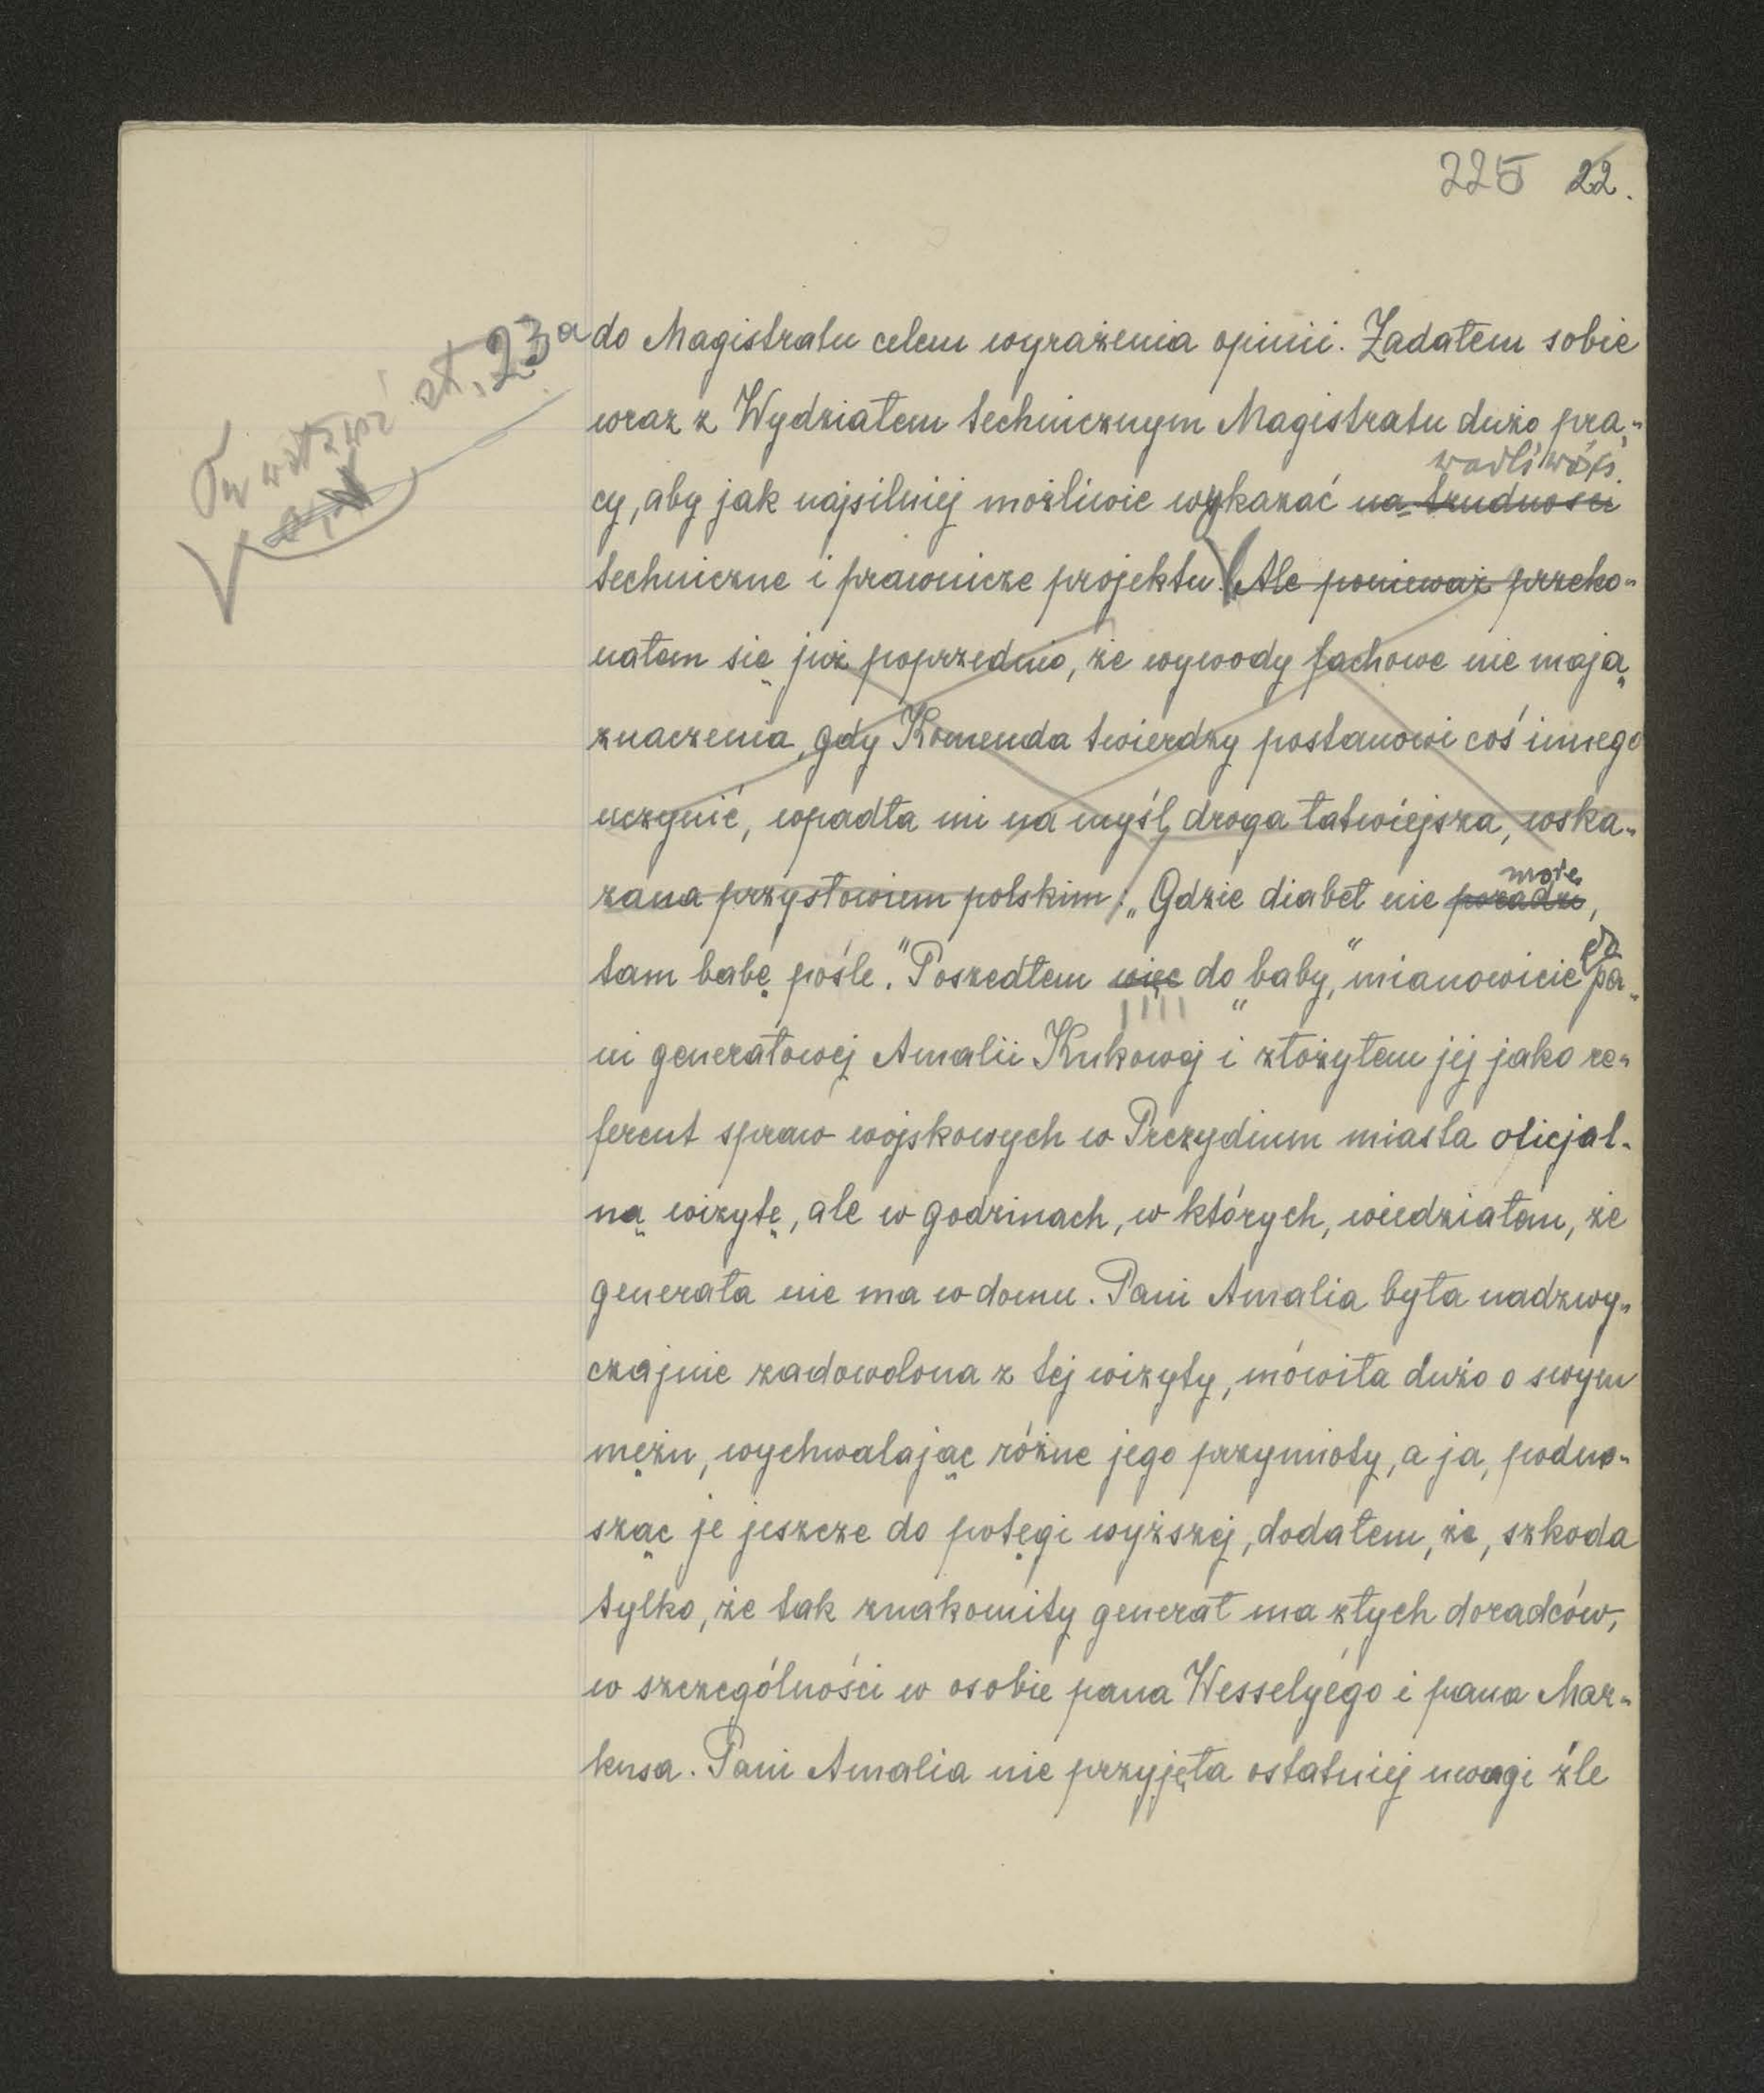 225 22.
Tu wstawić st. 23a
do Magistratu celem wyrażenia opinii. Zadałem sobie
wraz z Wydziałem technicznym Magistratu dużo pra-
wadliwości
cy, aby jak najsilniej możliwie wykazać na trudności
techniczne i prawnicze projektu. Ale ponieważ przeko-
nałem się już poprzednio, że wywody fachowe nie mają
znaczenia, gdy Komenda twierdzy postanowi coś innego
uczynić, wpadła mi na myśl droga łatwiejsza, wska-
może
zana przysłowiem polskim: „Gdzie diabeł nie poradzi,
do
tam babę pośle." Poszedłem więc do „baby," mianowicie pa-
ni generałowej Amalii Kukowej i złożyłem jej jako re-
ferent spraw wojskowych w Prezydium miasta oficjal-
ną wizytę, ale w godzinach, w których, wiedziałem, że
generała nie ma w domu. Pani Amalia była nadzwy-
czajnie zadowolona z tej wizyty, mówiła dużo o swym
mężu, wychwalając różne jego przymioty, a ja, podno-
sząc je jeszcze do potęgi wyższej, dodałem, że, szkoda
tylko, że tak znakomity generał ma złych doradców,
w szczególności w osobie pana Wesselyégo i pana Mar-
kusa. Pani Amalia nie przyjęła ostatniej uwagi źle